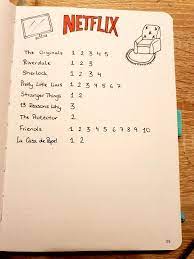 NETFLIX
The Originals 1 2 3 4 5
Riverdale 1 2 3
Sherlock 1 2 3 4
Pretty Little Liars 1 2 3 4 5
Stranger Things 1 2
13 Reasons Why 3
The Protector 2
Friends 1 2 3 4 5 6 7 8 9 10
La Casa de Papel 1 2